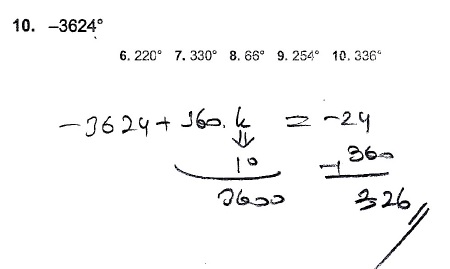 10. –3624°
6. 220° 7. 330° 8. 66° 9. 254° 10. 336°
-3624 + 360. k = -24
10 + 360
3600 326